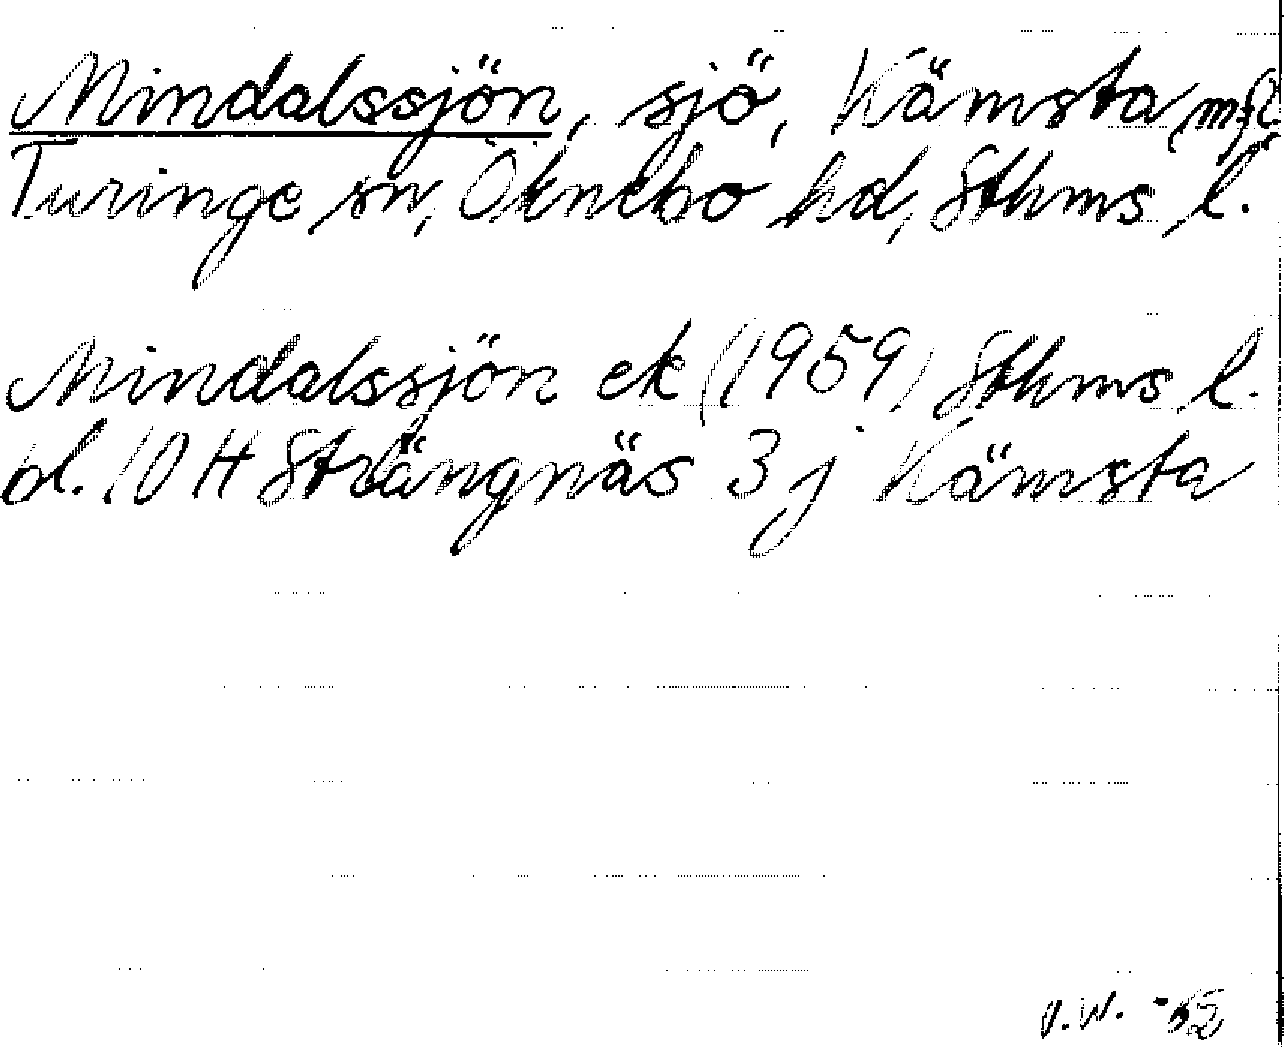 Mindalssjön, sjö, Kämsta mfl
Turinge sn, Öknebo hd, Sthms l.
Mindalssjön ek (1959) Sthms l.
bl. 10 H Strängnäs 3 j Kämsta